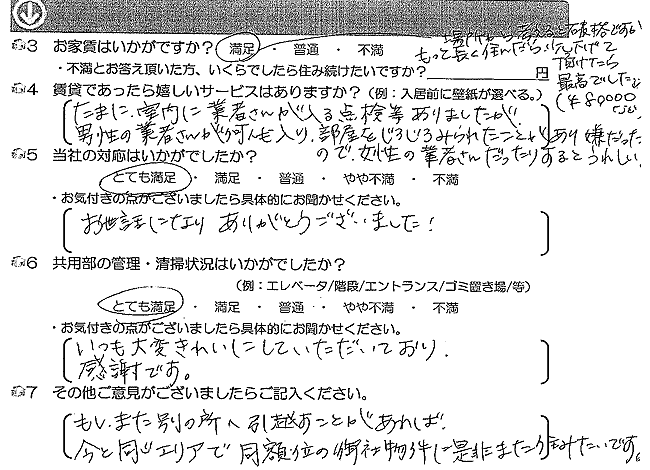 場所から考えると妥当な価格ですが
3 お家賃はいかがですか？ 満足 ・ 普通 ・ 不満
もって長く住んだら
頂けたら
・不満とお答え頂いた方、いくらでしたら住み続けたいですか？ 円
最高でした。
4 賃貸であったら嬉しいサービスはありますか？（例：入居前に壁紙が選べる。）
(¥80000
たまに、室内に業者さんが入る点検等ありましたが、
男性の業者さんが何人も入り、部屋をじろじろみられたことがあり嫌だった
5 当社の対応はいかがでしたか？
ので、女性の業者さんだったりするとうれしい。
とても満足 ・ 満足 ・ 普通 ・ やや不満 ・ 不満
・お気付きの点がございましたら具体的にお聞かせください。
お世話になり ありがとうございました！
6 共用部の管理・清掃状況はいかがでしたか？
（例：エレベータ/階段/エントランス/ゴミ置き場/等）
とても満足 ・ 満足 ・ 普通 ・ やや不満 ・ 不満
・お気付きの点がございましたら具体的にお聞かせください。
いつも大変きれいにしていただいており、
感謝です。
7 その他ご意見がございましたらご記入ください。
もし、また別の所へ引越すことがあれば、
今と同じエリアで 同額位の御社物件に是非またまた住みたいです。